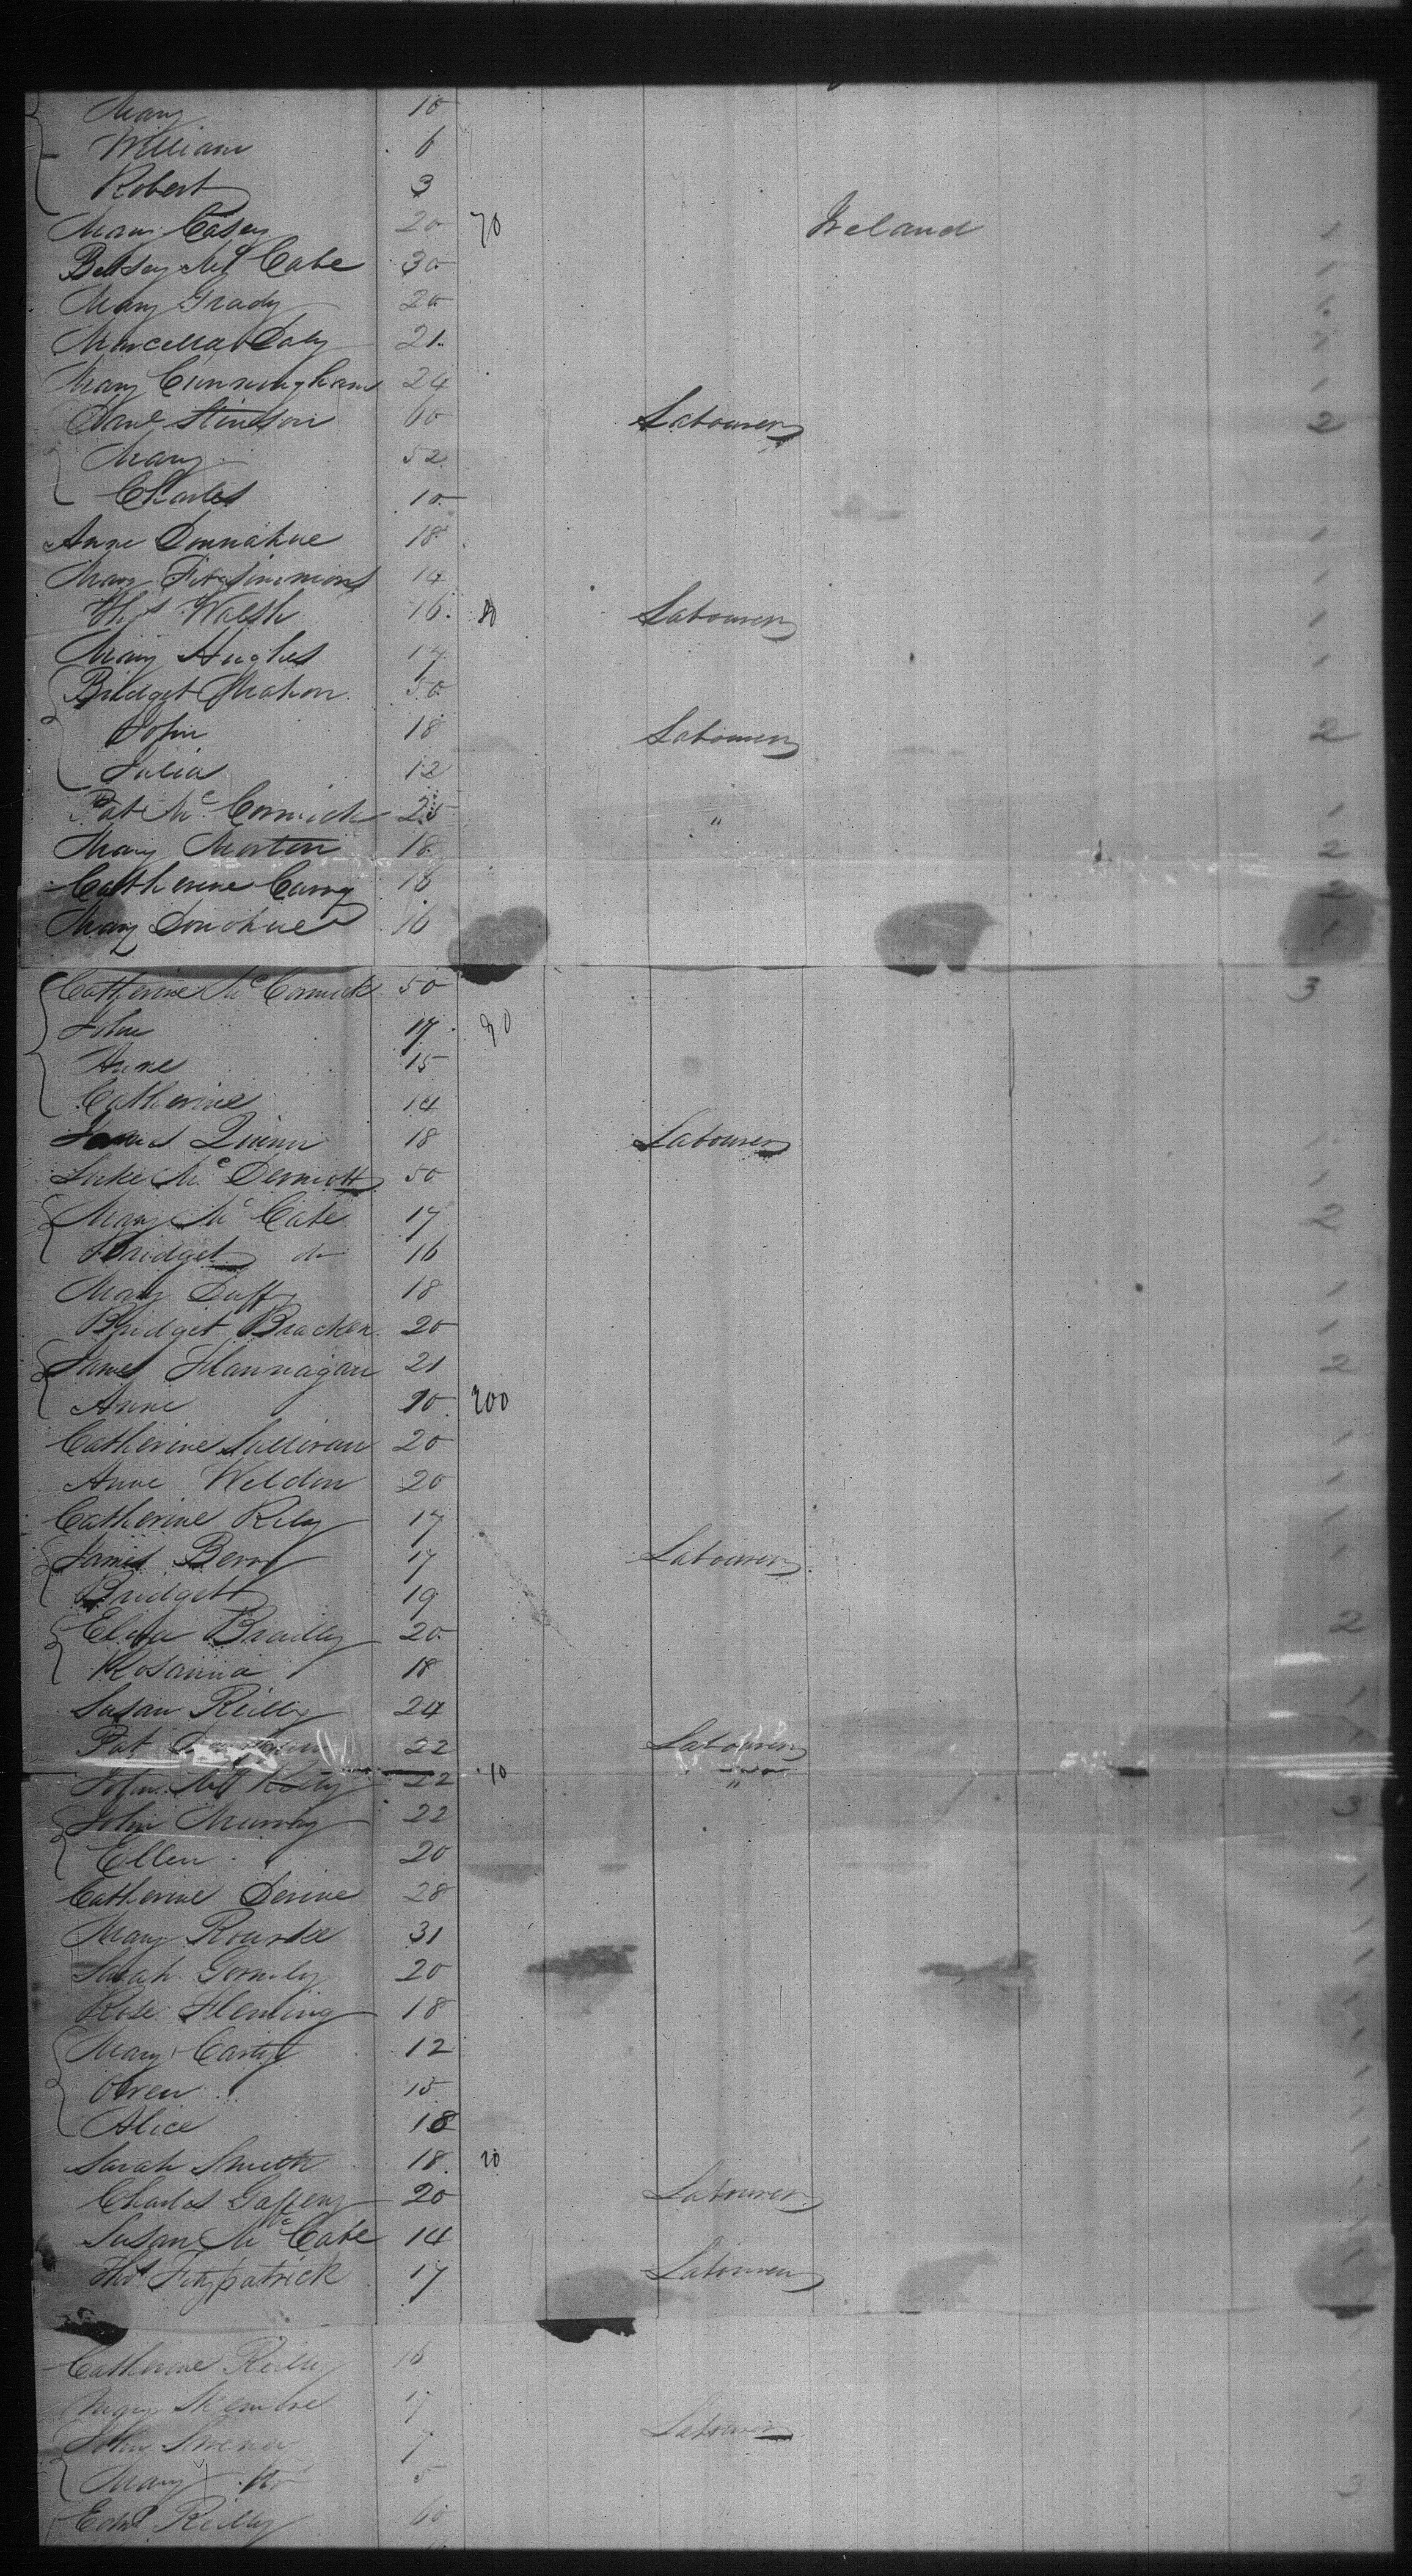 Mary 10
William 6
Robert 3
Mary Casey 20 70 Ireland 1
Betsey Mc Cabe 30 1
Mary Grady 20 1
Marcella Daly 21 1
Mary Cunningham 24 1
Stinson 60 Labourer 2
Mary 52
Charles 10
Anne Donnahue 18 1
Mary Fitzsimmons 14 1
Thos Walsh 16 Labourer 1
Mary Hughes 17 1
Bridget Mahon 50
John 18 Labourer 2
Julia 12
Pat Mc Cormick 25 " 1
Mary Morton 18 2
Catherine Carry 16 2
Mary Donohue 16 1
Catherine Mc Cormick 50 3
John 17 90
Anne 15
Catherine 14
James Quinn 18 Labourer 1
Luke Mc Dermott 50 1
Mary Mc Cabe 17 2
Bridget do 16
Mary Duffy 18 1
Bridget Bracken 20 1
James Flannagan 21 2
Anne 20 200
Catherine Sullivan 20 1
Anne Weldon 20 1
Catherine Rily 17 1
James Berry 17 Labourer 1
Bridget 19
Eliza Bradly 20 2
Rosanna 18
Susan Reilly 24 1
Pat 22 Labourer 1
John 22 10 "
John Murray 22 3
Ellen 20
Catherine Devine 28 1
Mary Rourke 31 1
Sarah Gormly 20 1
Rose Fleming 18 1
Mary Carty 12 1
Owen 15 1
Alice 18 1
Sarah Smith 18 20 1
Charles Gaffeny 20 Labourer 1
Susan Mc Cabe 14 1
Thos Fitzpatrick 17 Labourer 1
Catherine Reilly 16 1
17 1
John 7 Labourer
Mary 5 3
Edwd Reilly 60